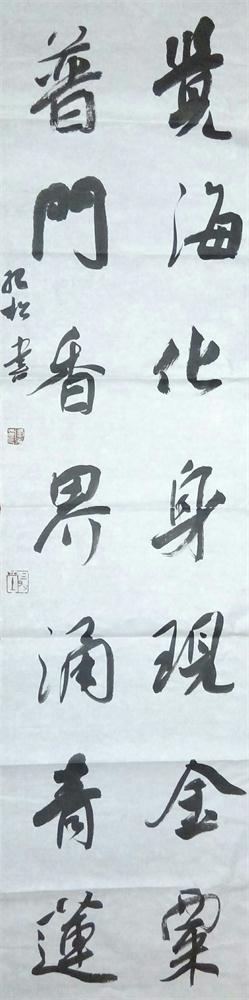 覺海化身現金粟
普門香界涌青蓮
松書